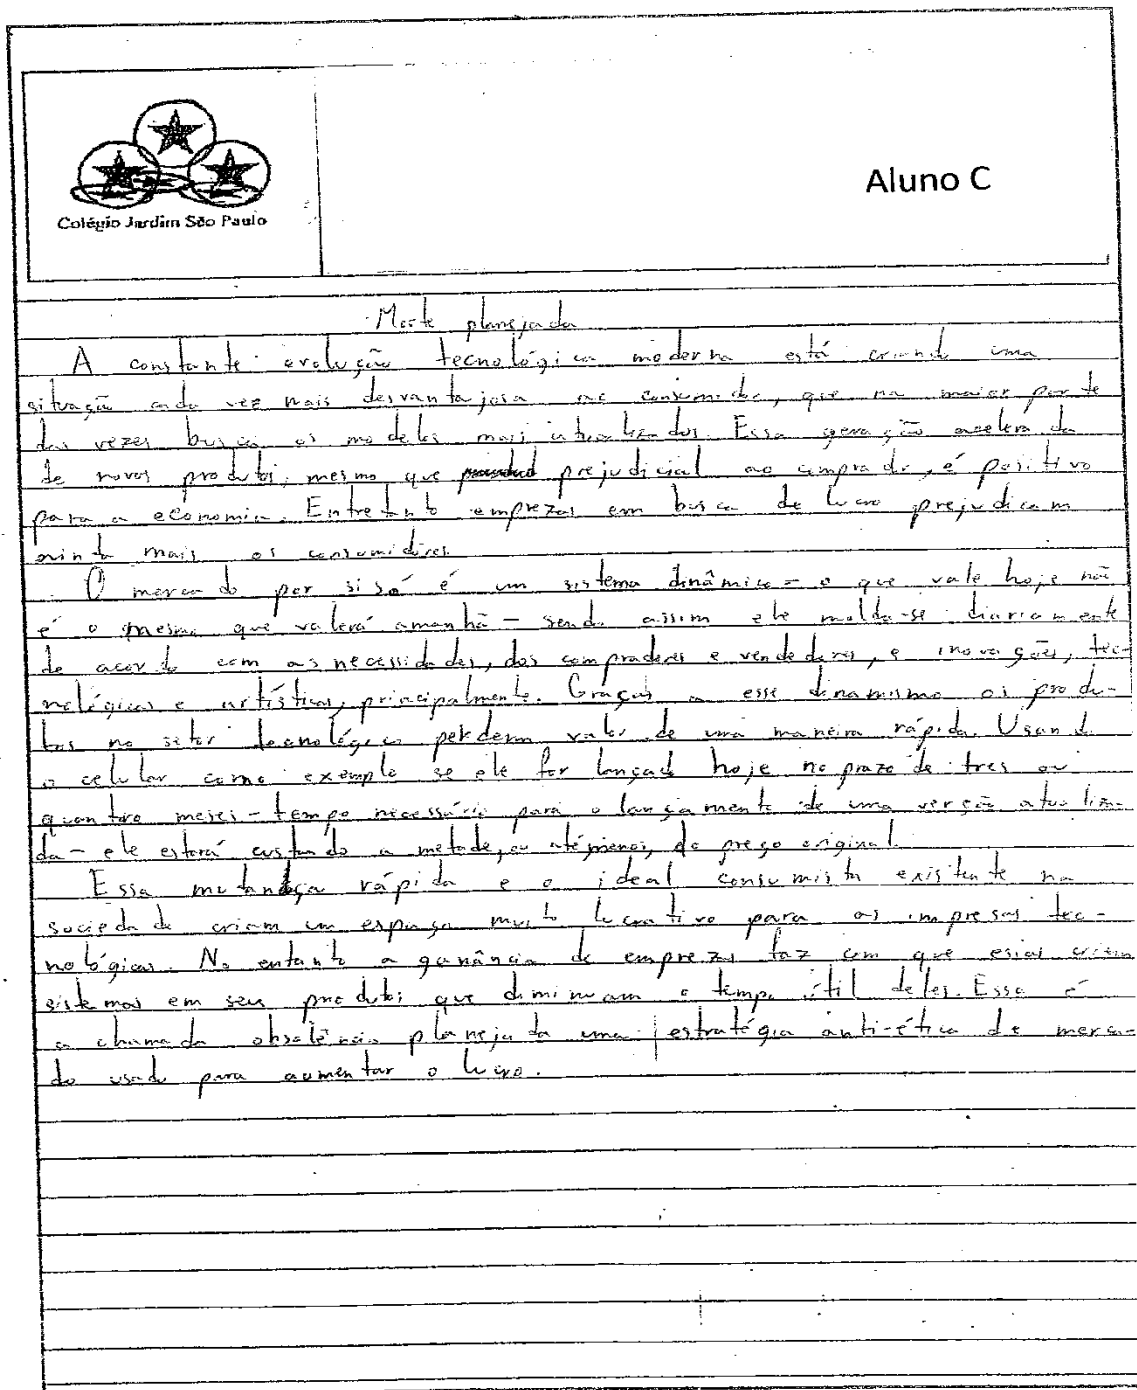 Colégio Jardim São Paulo
Aluno C
Morte planejada
A constante evolução tecnológica moderna está criando uma
situação cada vez mais desvantajosa ao consumidor, que na maior parte
das vezes busca os modelos mais atualizados. Essa geração acelerada
de novos produtos, mesmo que prejudicial ao comprador, é positivo
para a economia. Entretanto emprezas em busca de lucro prejudicam
ainda mais os consumidores.
O mercado por si só é um sistema dinâmico - o que vale hoje não
é o mesmo que valerá amanhã - sendo assim ele molda-se diariamente
de acordo com as necessidades, dos compradores e vendedores, e inovações, tec-
nológicas e artísticas, principalmente. Graças a esse dinamismo os produ-
tos no setor tecnológico perdem valor de uma maneira rápida. Usando
o celular como exemplo se ele for lançado hoje no prazo de tres ou
quantro meses - tempo necessário para o lançamento de uma versão atualiza-
da - ele estará custando a metade, ou até menos, do preço original.
Essa mutança rápida e o ideal consumista existente na
sociedade criam um espaço muito lucrativo para as impresas tec-
nológicas. No entanto a ganância de emprezas faz com que essas criem
sistemas em seus produtos que diminuam o tempo útil deles. Essa é
a chamada obsolência planejada uma estratégia anti-ética de merca-
do usado para aumentar o lucro.